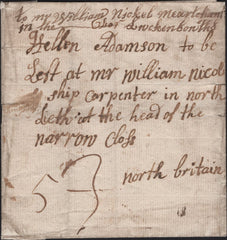 to mr William Nickel Meartchant
in the Luckenbooths
Hellen Adamson to be
Left at mr william nicol
ship carpenter in north
Leth at the head of the
narrow Closs
north britain